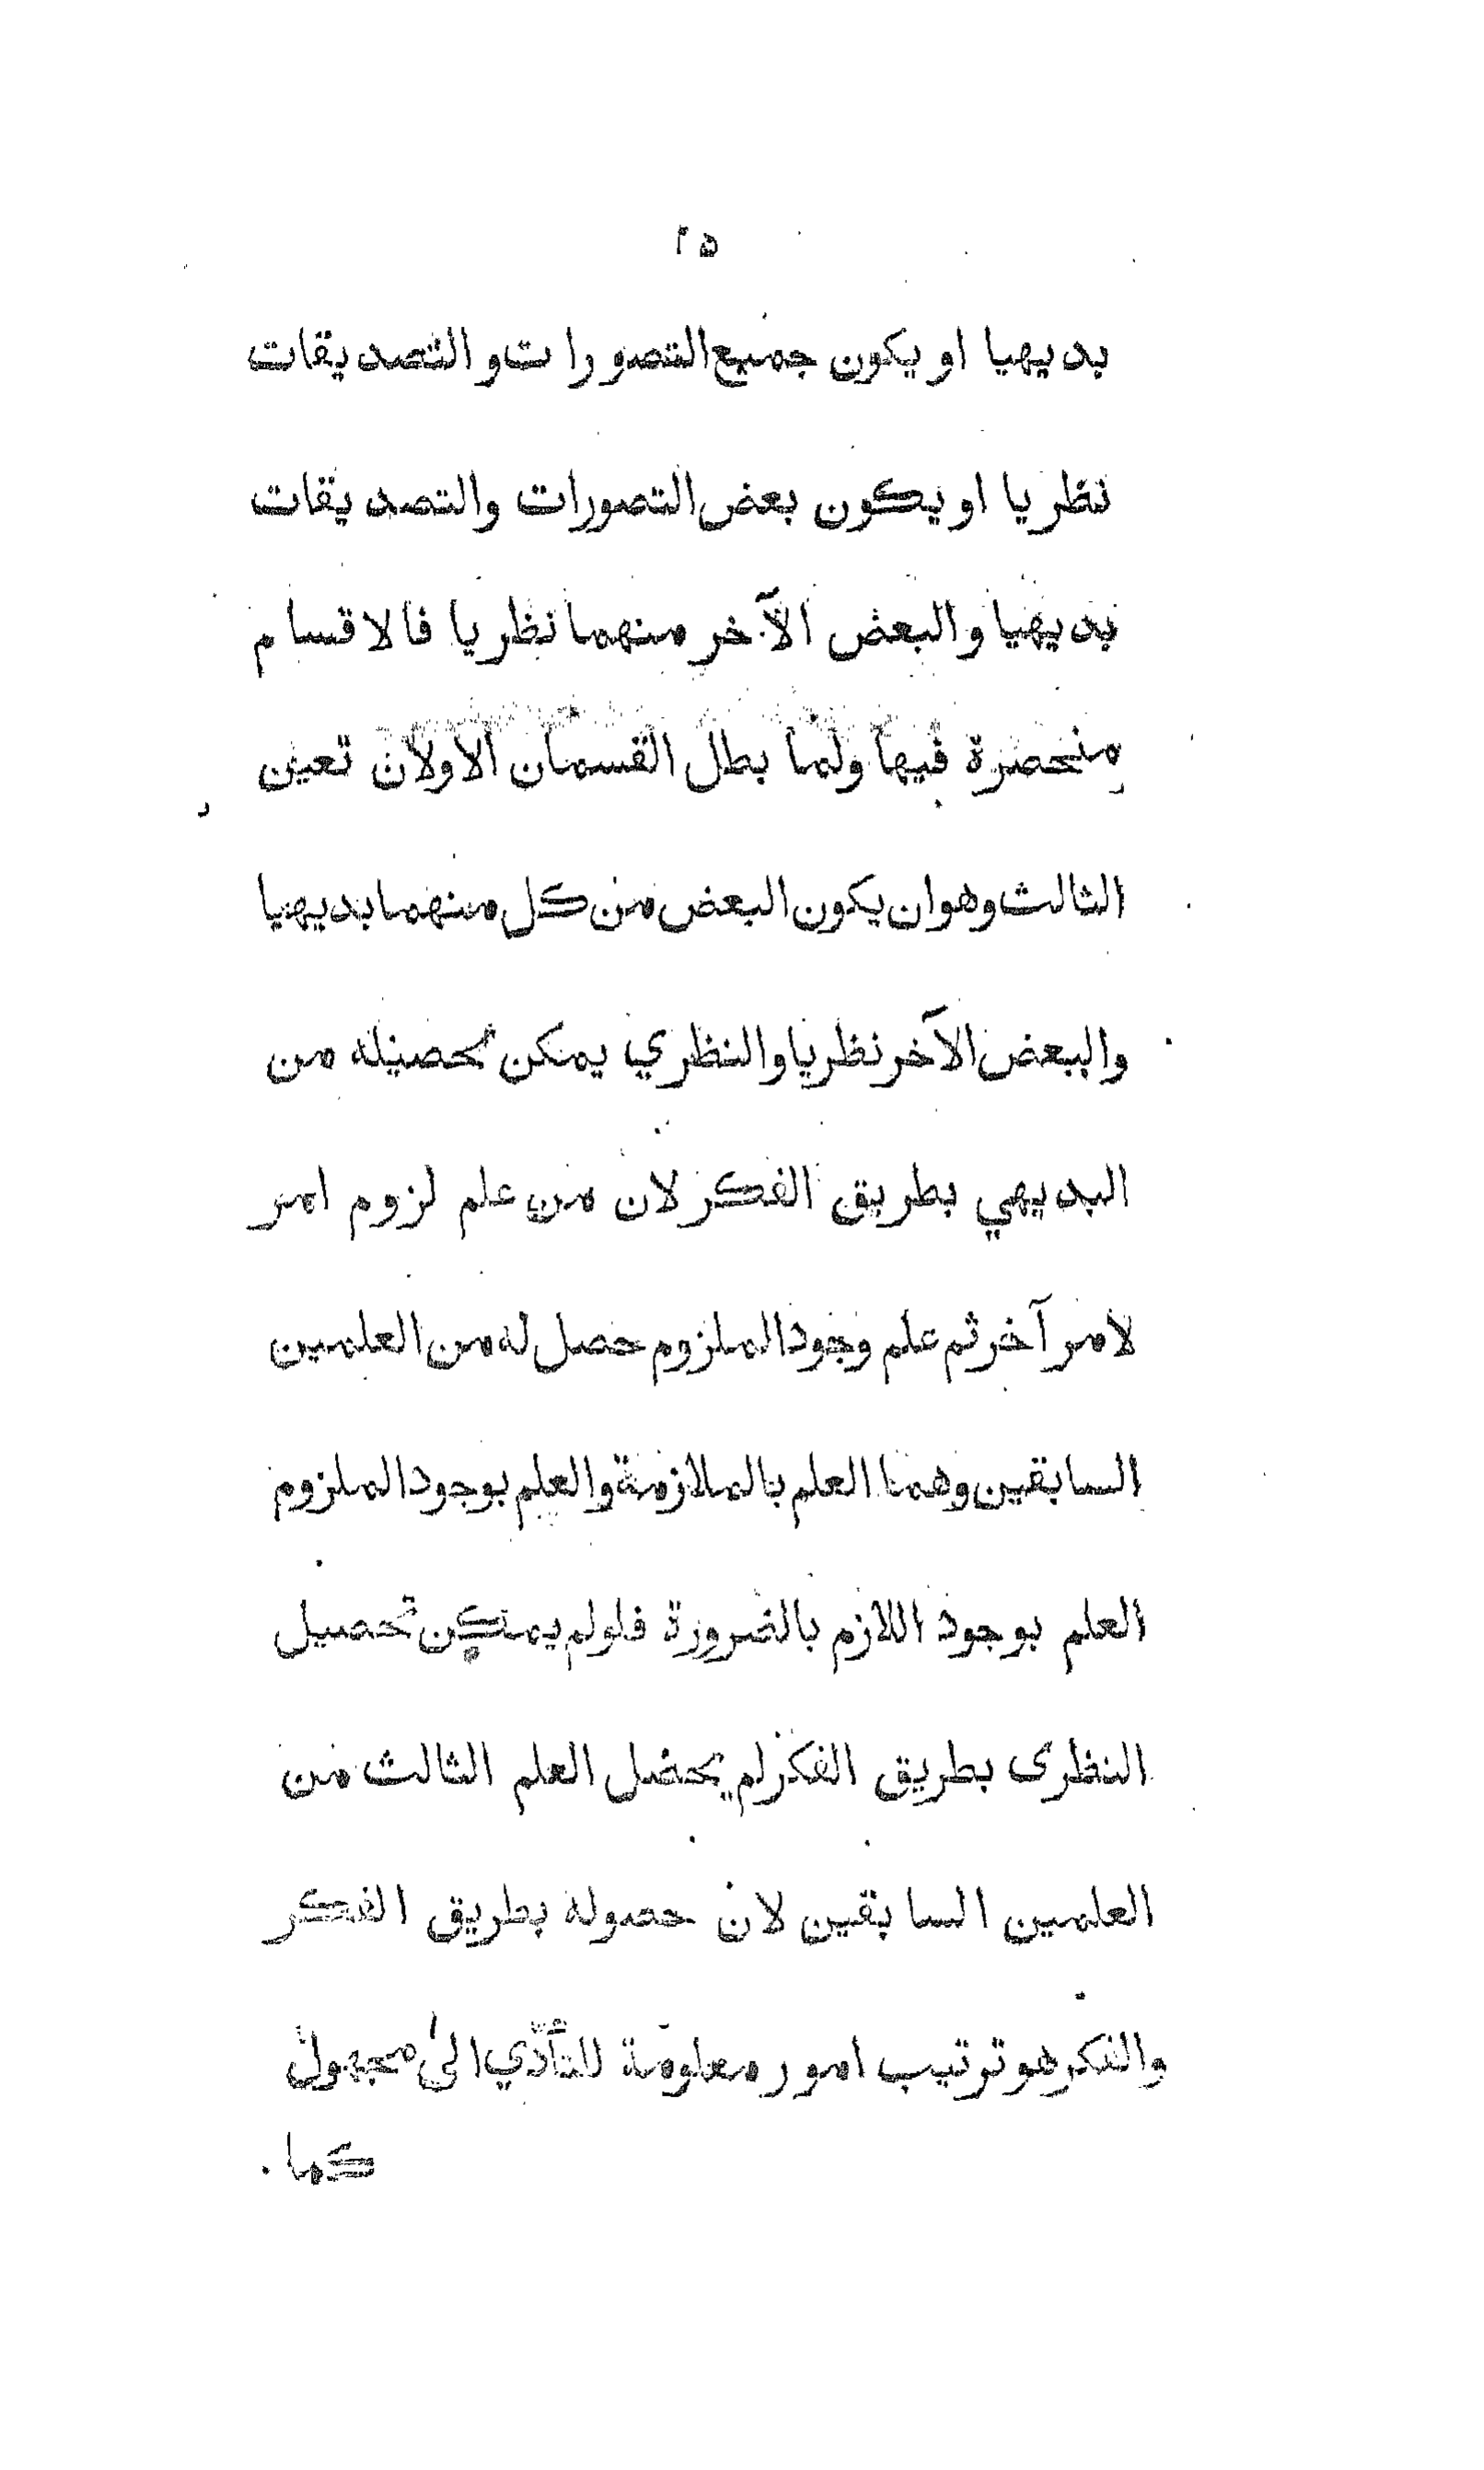 ٢٥
بديهيا او يكون جميع التصورات و التصديقات
نظريا او يكون بعض التصورات والتصديقات
بديهيا والبعض الآخر منهما نظريا فالاقسام
منحصرة فيها ولما بطل القسمان الاولان تعين
الثالث وهو ان يكون البعض من كل منهما بديهيا
والبعض الآخر نظريا والنظري يمكن تحصيله من
البديهي بطريق الفكر لان من علم لزوم امر
لامر آخر ثم علم وجود الملزوم حصل له من العلمين
السابقين وهما العلم بالملازمة والعلم بوجود الملزوم
العلم بوجود اللازم بالضرورة فلو لم يمكن تحصيل
النظرى بطريق الفكر لم يحصل العلم الثالث من
العلمين السابقين لان حصوله بطريق الفكر
والفكر هو ترتيب امور معلومة للتأدّي الى مجهول
كما